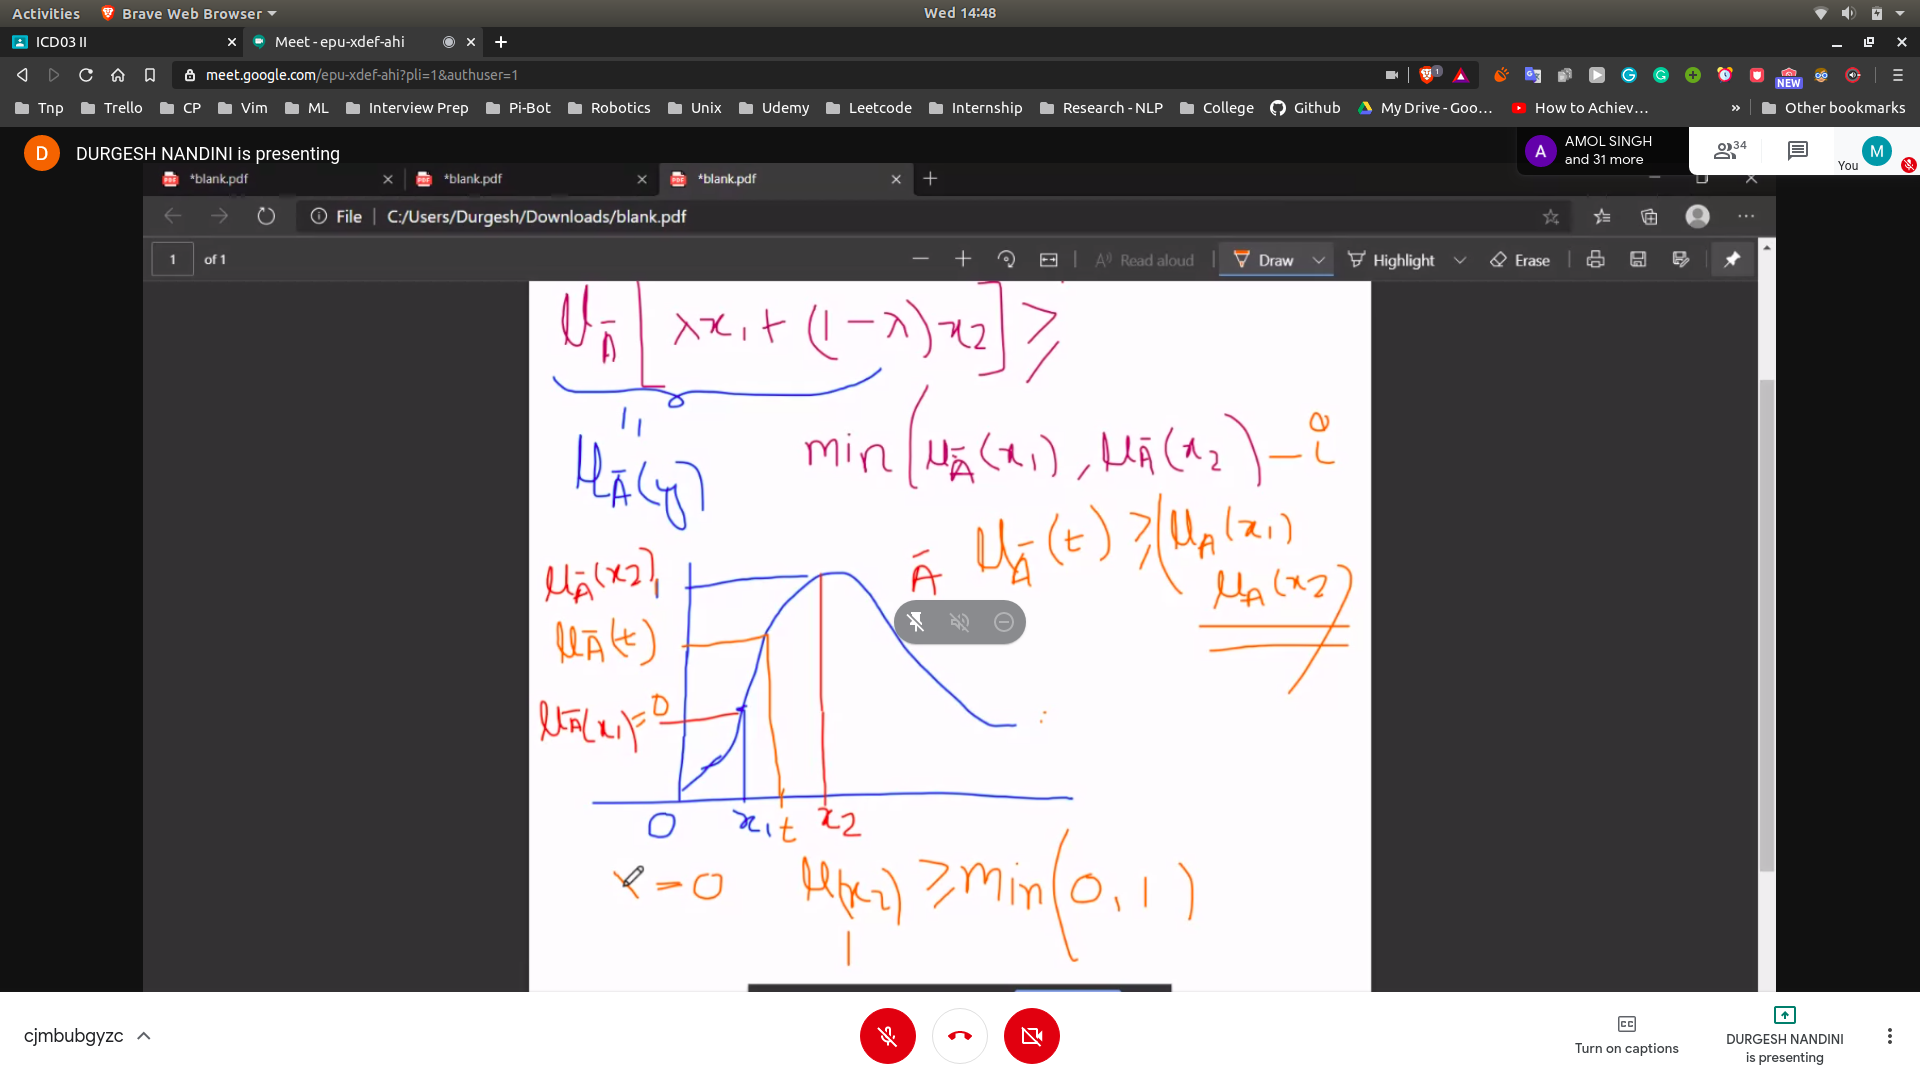 Activities Brave Web Browser Wed 14:48
ICD03 II Meet - epu-xdef-ahi
meet.google.com/epu-xdef-ahi?pli=1&authuser=1
NEW
Tnp Trello CP Vim ML Interview Prep Pi-Bot Robotics Unix Udemy Leetcode Internship Research - NLP College Github My Drive - Goo... How to Achiev... » Other bookmarks
D DURGESH NANDINI is presenting
A AMOL SINGH and 31 more
34
You M
*blank.pdf *blank.pdf *blank.pdf
File C:/Users/Durgesh/Downloads/blank.pdf
1 of 1 Read aloud Draw Highlight Erase
μ_Ā [ λx₁ + (1 − λ)x₂ ] ≥
min ( μ_Ā(x₁), μ_Ā(x₂) ) — i
μ_Ā(y)
μ_Ā(t) ≥ ( μ_A(x₁)
μ_A(x₂) )
Ā
μ_Ā(x₂) 1
μ_Ā(t)
μ_Ā(x₁) = 0
0 x₁ t x₂
= 0 μ(x₂) ≥ min ( 0, 1 )
1
cjmbubgyzc
Turn on captions
DURGESH NANDINI
is presenting